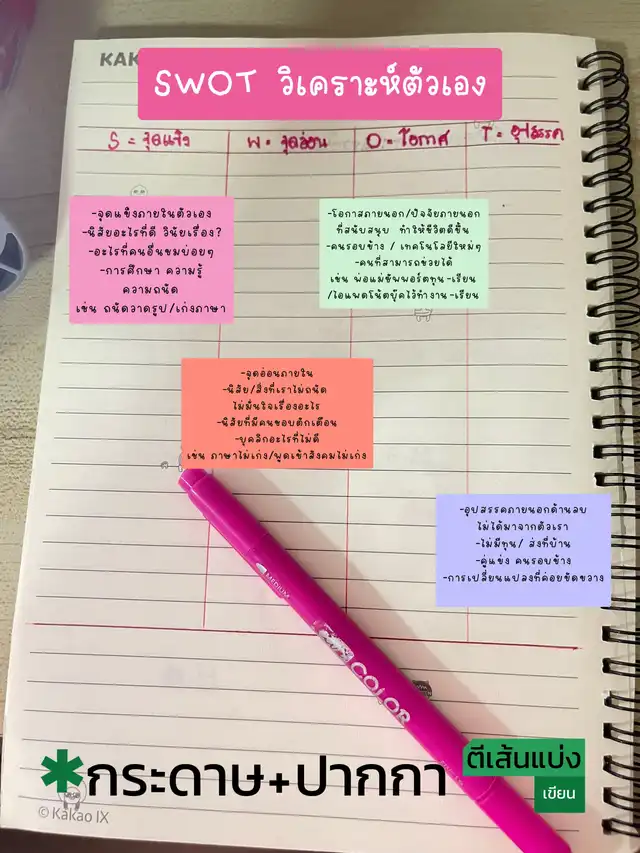 KAK
SWOT วิเคราะห์ตัวเอง
S = จุดแข็ง
W = จุดอ่อน
O = โอกาส
T = อุปสรรค
-จุดแข็งภายในตัวเอง
-นิสัยอะไรที่ดี วินัยเรื่อง?
-อะไรที่คนอื่นชมบ่อยๆ
-การศึกษา ความรู้
ความถนัด
เช่น ถนัดวาดรูป/เก่งภาษา
-โอกาสภายนอก/ปัจจัยภายนอก
ที่สนับสนุน ทำให้ชีวิตดีขึ้น
-คนรอบข้าง / เทคโนโลยีใหม่ๆ
-คนที่สามารถช่วยได้
เช่น พ่อแม่ซัพพอร์ตทุน-เรียน
/ไอแพดโน้ตบุ๊คไว้ทำงาน-เรียน
-จุดอ่อนภายใน
-นิสัย/สิ่งที่เราไม่ถนัด
ไม่มั่นใจเรื่องอะไร
-นิสัยที่มีคนชอบตักเตือน
-บุคลิกอะไรที่ไม่ดี
เช่น ภาษาไม่เก่ง/พูดเข้าสังคมไม่เก่ง
-อุปสรรคภายนอกด้านลบ
ไม่ได้มาจากตัวเรา
-ไม่มีทุน/ ส่งที่บ้าน
-คู่แข่ง คนรอบข้าง
-การเปลี่ยนแปลงที่ค่อยขัดขวาง
MEDIUM
COLOR
*กระดาษ+ปากกา
ตีเส้นแบ่ง
เขียน
© Kakao IX